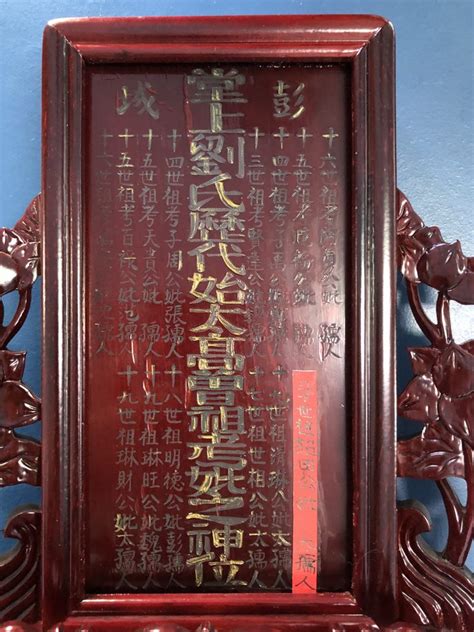 彭城
堂上劉氏歷代始太高曾祖考妣之神位
十六世祖考公妣孺人
十五世祖考公妣孺人
十四世祖考子公妣孺人
十三世祖考賢公妣孺人
世祖公妣孺人
世祖琳公妣太孺人
十七世祖世相公妣太孺人
十四世祖考子周公妣張孺人
十五世祖考天貴公妣孺人
十五世祖考日公妣范孺人
十六世祖孺人
十八世祖明德公妣彭孺人
十九世祖琳旺公妣魏孺人
十九世祖琳財公妣太孺人